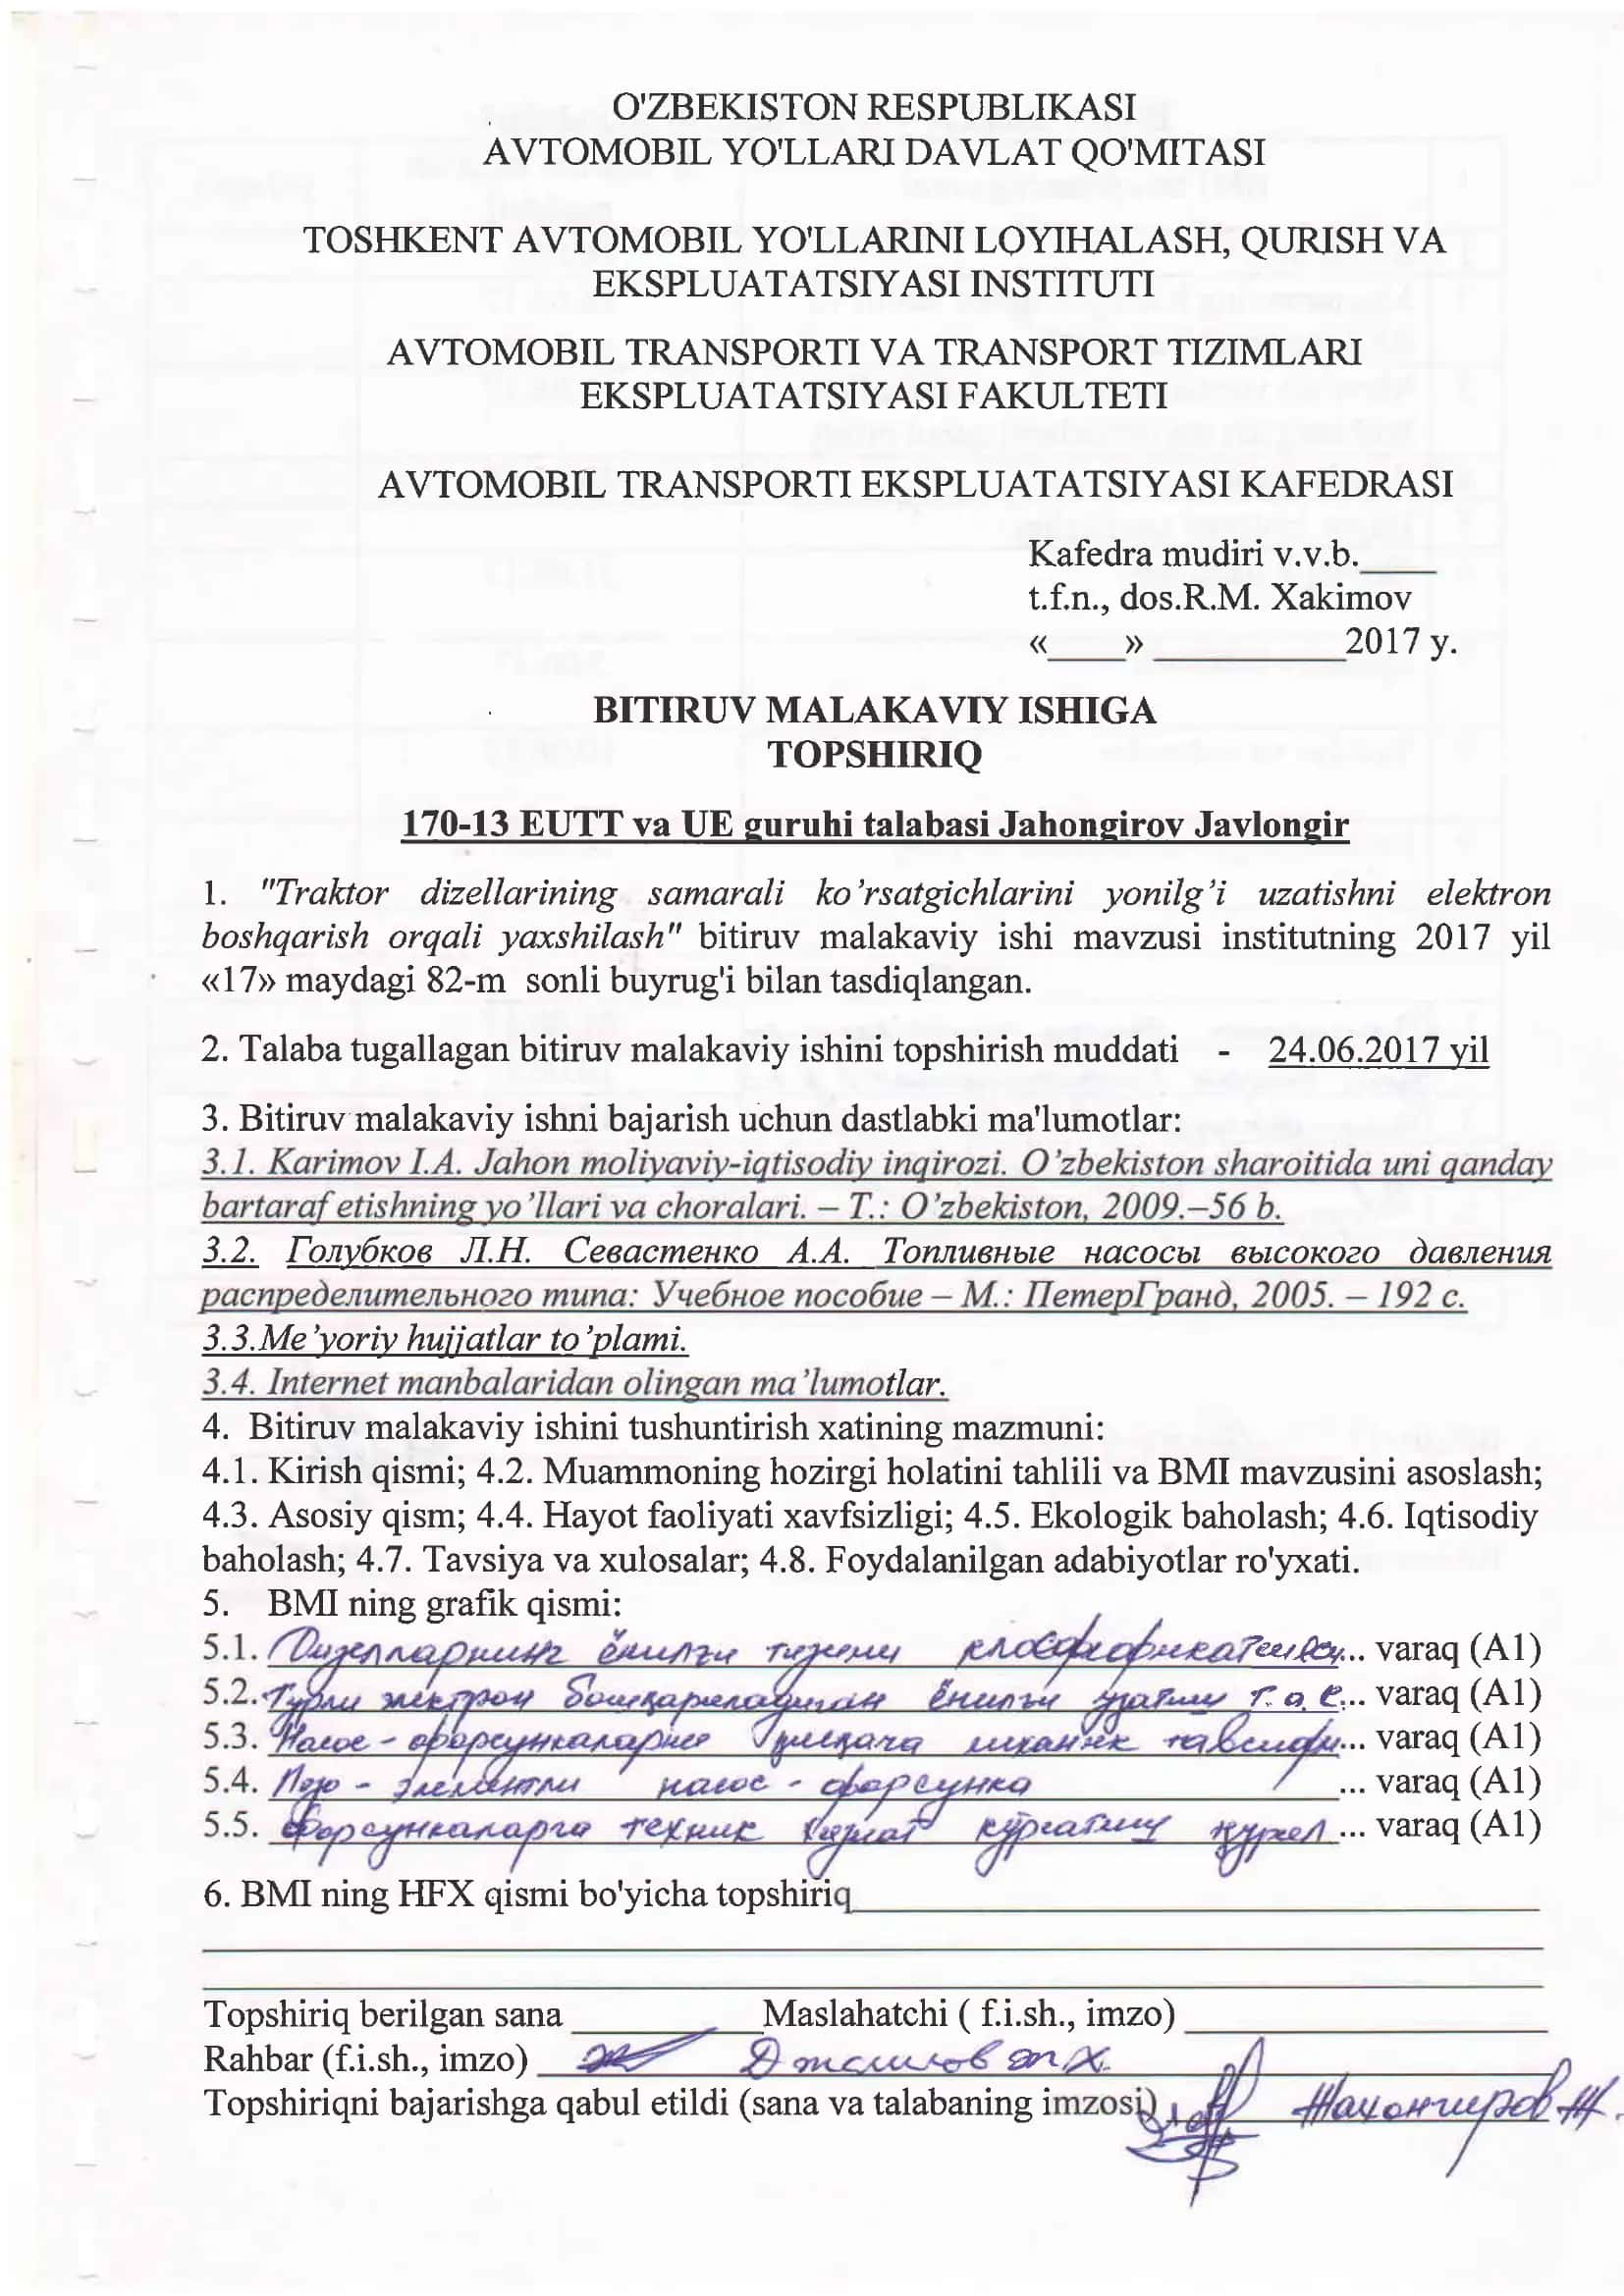 O'ZBEKISTON RESPUBLIKASI
AVTOMOBIL YO'LLARI DAVLAT QO'MITASI
TOSHKENT AVTOMOBIL YO'LLARINI LOYIHALASH, QURISH VA
EKSPLUATATSIYASI INSTITUTI
AVTOMOBIL TRANSPORTI VA TRANSPORT TIZIMLARI
EKSPLUATATSIYASI FAKULTETI
AVTOMOBIL TRANSPORTI EKSPLUATATSIYASI KAFEDRASI
Kafedra mudiri v.v.b.____
t.f.n., dos.R.M. Xakimov
«____» __________2017 y.
BITIRUV MALAKAVIY ISHIGA
TOPSHIRIQ
170-13 EUTT va UE guruhi talabasi Jahongirov Javlongir
1. "Traktor dizellarining samarali ko’rsatgichlarini yonilg’i uzatishni elektron
boshqarish orqali yaxshilash" bitiruv malakaviy ishi mavzusi institutning 2017 yil
«17» maydagi 82-m sonli buyrug'i bilan tasdiqlangan.
2. Talaba tugallagan bitiruv malakaviy ishini topshirish muddati - 24.06.2017 yil
3. Bitiruv malakaviy ishni bajarish uchun dastlabki ma'lumotlar:
3.1. Karimov I.A. Jahon moliyaviy-iqtisodiy inqirozi. O’zbekiston sharoitida uni qanday
bartaraf etishning yo’llari va choralari. – T.: O’zbekiston, 2009.–56 b.
3.2. Голубков Л.Н. Севастенко А.А. Топливные насосы высокого давления
распределительного типа: Учебное пособие – М.: ПетерГранд, 2005. – 192 с.
3.3.Me’yoriy hujjatlar to’plami.
3.4. Internet manbalaridan olingan ma’lumotlar.
4. Bitiruv malakaviy ishini tushuntirish xatining mazmuni:
4.1. Kirish qismi; 4.2. Muammoning hozirgi holatini tahlili va BMI mavzusini asoslash;
4.3. Asosiy qism; 4.4. Hayot faoliyati xavfsizligi; 4.5. Ekologik baholash; 4.6. Iqtisodiy
baholash; 4.7. Tavsiya va xulosalar; 4.8. Foydalanilgan adabiyotlar ro'yxati.
5. BMI ning grafik qismi:
5.1. Дизелларнинг ёнилғи тизими ... varaq (A1)
5.2. Турли электрон бошқариладиган ёнилғи узатиш ... varaq (A1)
5.3. Насос - форсункаларни қисқача механик тавсифи... varaq (A1)
5.4. Пезо - элементли насос - форсунка ... varaq (A1)
5.5. Форсункаларга техник хизмат кўрсатиш ... varaq (A1)
6. BMI ning HFX qismi bo'yicha topshiriq
Topshiriq berilgan sana __________Maslahatchi ( f.i.sh., imzo)
Rahbar (f.i.sh., imzo)
Topshiriqni bajarishga qabul etildi (sana va talabaning imzosi) Жахонгиров Ж.